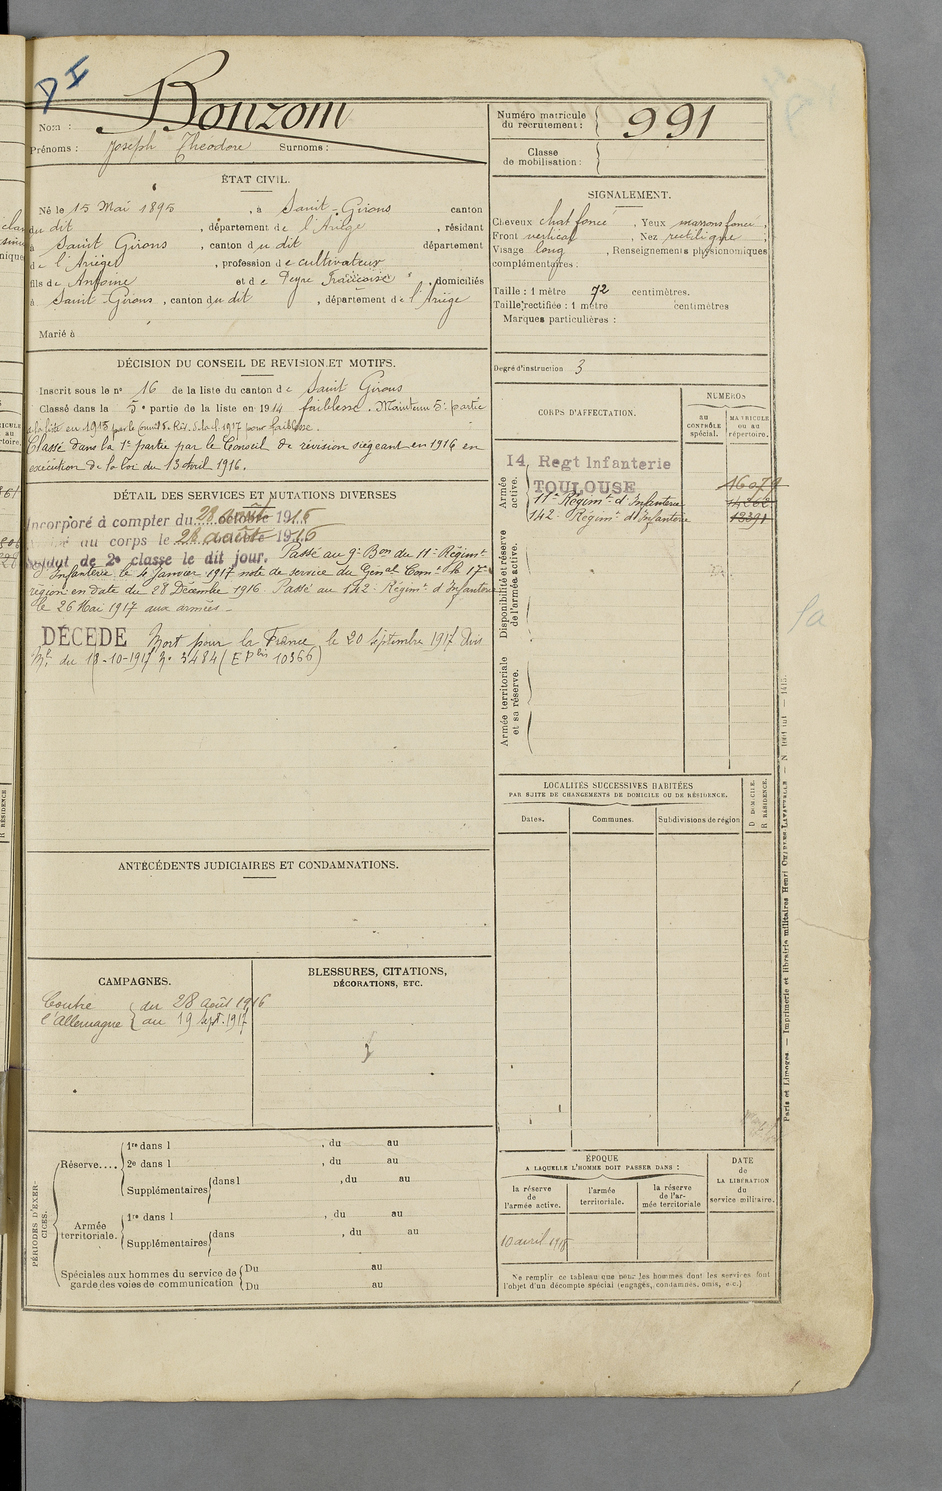 D I
Nom : Bonzom
Prénoms : Joseph Théodore Surnoms :
Numéro matricule du recrutement : 991
Classe de mobilisation :
ÉTAT CIVIL.
Né le 15 Mai 1895 , à Saint-Girons canton
du dit , département de l'Ariège , résidant
à Saint Girons , canton du dit département
de l'Ariège , profession de cultivateur
fils de Antoine et de Peyre Françoise , domiciliés
à Saint-Girons , canton du dit , département de l'Ariège
Marié à
SIGNALEMENT.
Cheveux chat foncé , Yeux marrons foncé ;
Front vertical , Nez rectiligne ;
Visage long , Renseignements physionomiques
complémentaires :
Taille : 1 mètre 72 centimètres.
Taille rectifiée : 1 mètre centimètres
Marques particulières :
Degré d'instruction 3
DÉCISION DU CONSEIL DE REVISION ET MOTIFS.
Inscrit sous le n° 16 de la liste du canton de Saint Girons
Classé dans la 5e partie de la liste en 1914 faiblesse. Maintenu 5e partie
de la liste en 1915 par le Conseil pour faiblesse.
Classé dans la 1e partie par le Conseil de révision siégeant en 1916 en
exécution de la loi du 13 avril 1916.
DÉTAIL DES SERVICES ET MUTATIONS DIVERSES
Incorporé à compter du 28 août 1916
au corps le 28 août 1916
Soldat de 2e classe le dit jour. Passé au 9e Bon du 11e Régimt
d'Infanterie le 4 Janvier 1917 note de service du Génal Comt la 17e
région en date du 28 Décembre 1916. Passé au 142e Régimt d'Infanterie
le 26 Mai 1917 aux armées -
DÉCÉDÉ Mort pour la France le 20 Septembre 1917 Avis
Mel du 18-10-1917 No 3484 (E P bis 10366)
CORPS D'AFFECTATION.
NUMÉROS
au CONTRÔLE spécial.
MATRICULE ou au répertoire.
Armée active.
14, Regt Infanterie
TOULOUSE 16079
11e Régimt d'Infanterie 14262
142e Régimt d'Infanterie 13391
Disponibilité et réserve de l'armée active.
Armée territoriale et sa réserve.
LOCALITÉS SUCCESSIVES HABITÉES
PAR SUITE DE CHANGEMENTS DE DOMICILE OU DE RÉSIDENCE.
Dates.
Communes.
Subdivisions de région
D DOMICILE.
R RÉSIDENCE.
ANTÉCÉDENTS JUDICIAIRES ET CONDAMNATIONS.
CAMPAGNES.
Contre { du 28 août 1916
l'Allemagne { au 19 sept. 1917
BLESSURES, CITATIONS,
DÉCORATIONS, ETC.
PÉRIODES D'EXERCICES.
Réserve....
1re dans l , du au
2e dans l , du au
Supplémentaires dans l , du au
Armée territoriale.
1re dans l , du au
Supplémentaires dans , du au
Spéciales aux hommes du service de
garde des voies de communication
Du au
Du au
ÉPOQUE
A LAQUELLE L'HOMME DOIT PASSER DANS :
la réserve de l'armée active.
l'armée territoriale.
la réserve de l'armée territoriale
DATE de LA LIBÉRATION du service militaire.
10 avril 1918
Ne remplir ce tableau que pour les hommes dont les services font
l'objet d'un décompte spécial (engagés, condamnés, omis, etc.)
Paris et Limoges. — Imprimerie et librairie militaires Henri CHARLES-LAVAUZELLE